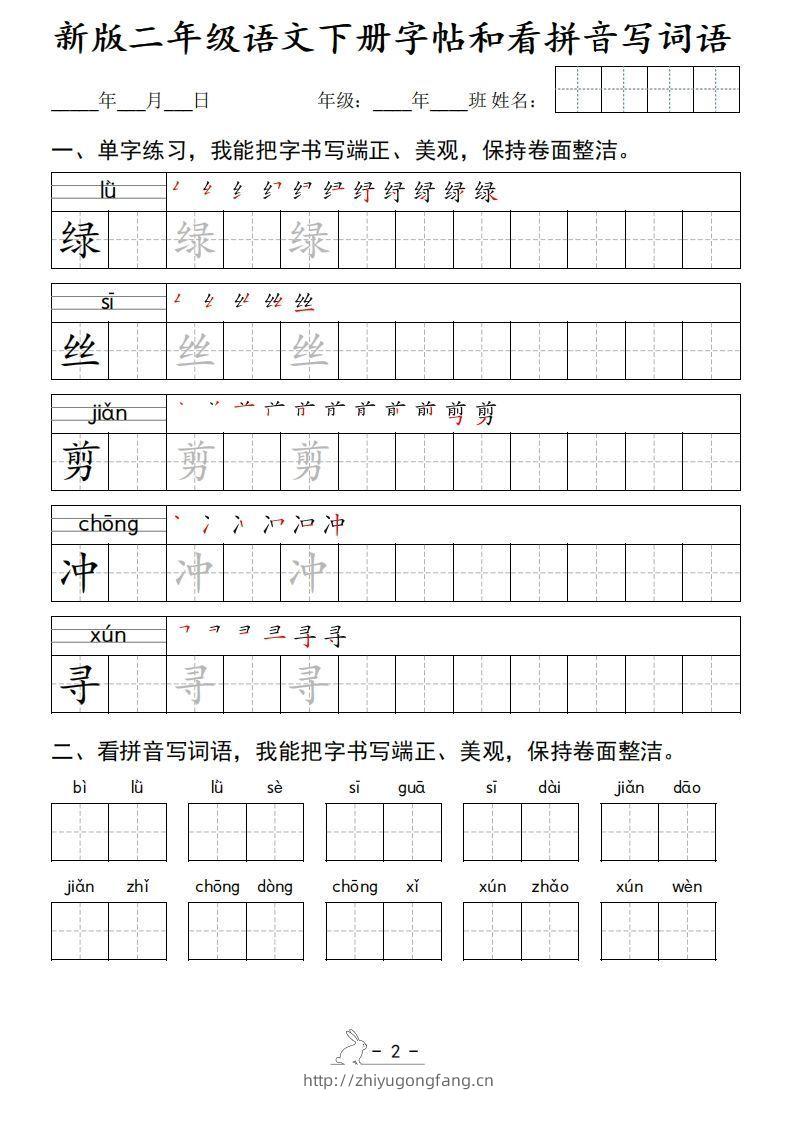 新版二年级语文下册字帖和看拼音写词语
_____年___月___日 年级：____年____班 姓名：
一、单字练习，我能把字书写端正、美观，保持卷面整洁。
lǜ
绿 绿 绿
sī
丝 丝 丝
jiǎn
剪 剪 剪
chōng
冲 冲 冲
xún
寻 寻 寻
二、看拼音写词语，我能把字书写端正、美观，保持卷面整洁。
bì lǜ lǜ sè sī guā sī dài jiǎn dāo
jiǎn zhǐ chōng dòng chōng xǐ xún zhǎo xún wèn
- 2 -
http://zhiyugongfang.cn